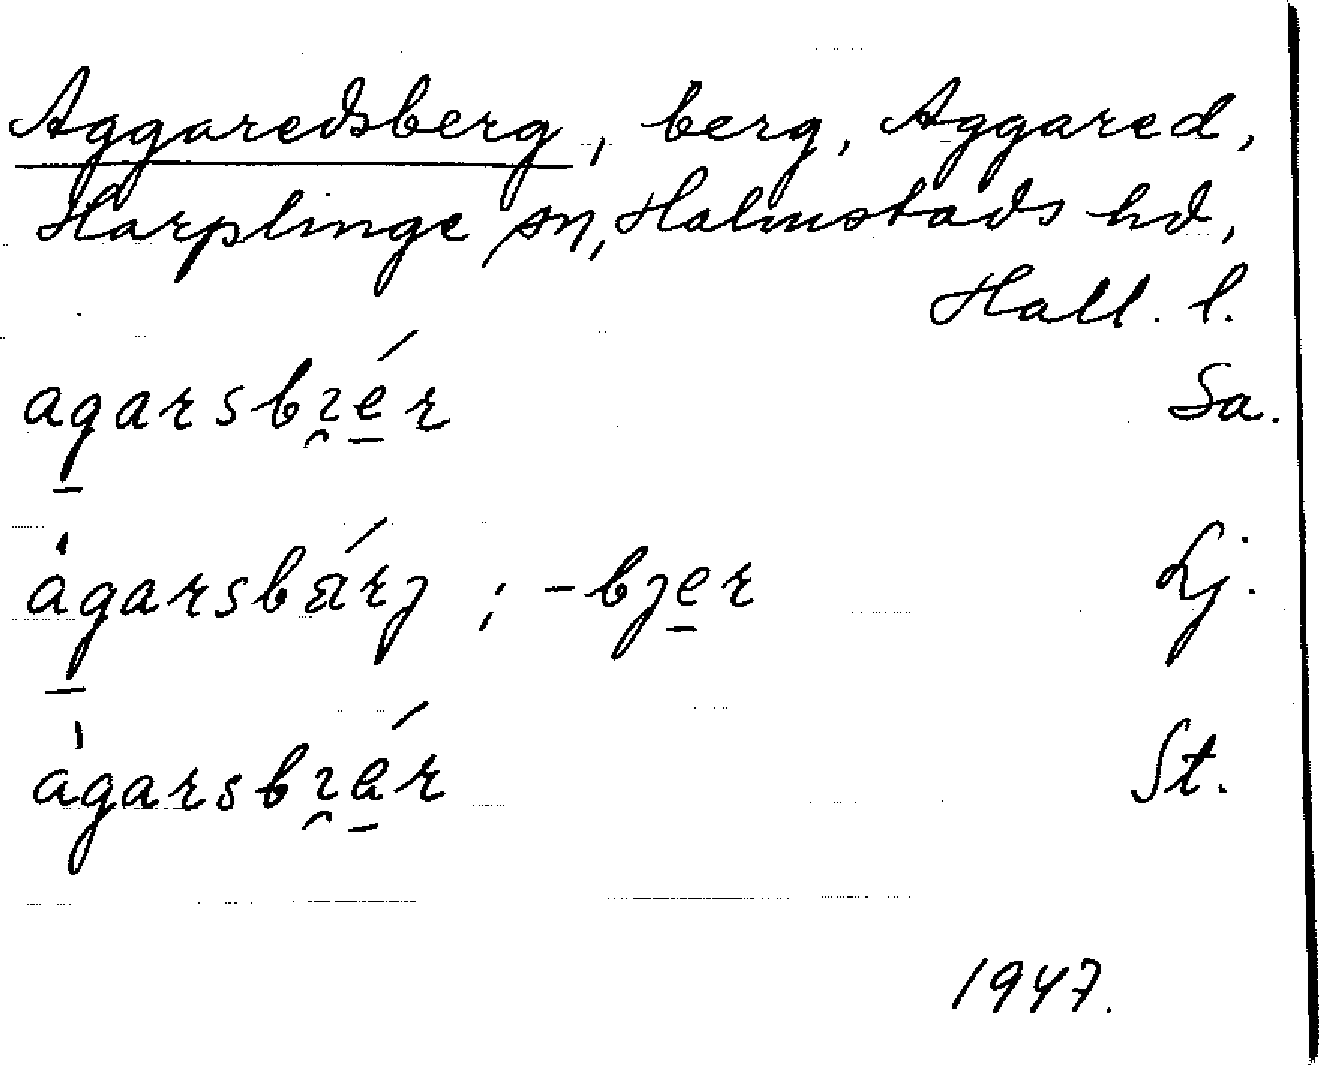 Aggaredsberg, berg, Aggared,
Harplinge sn, Halmstads hd,
Hall. l.
ag̲arsbɪ̯é̲r Sa.
a̍g̲arsbǽrȷ ; -bȷe̲r Lj.
a̍garsbɪ̯á̲r St.
1947.